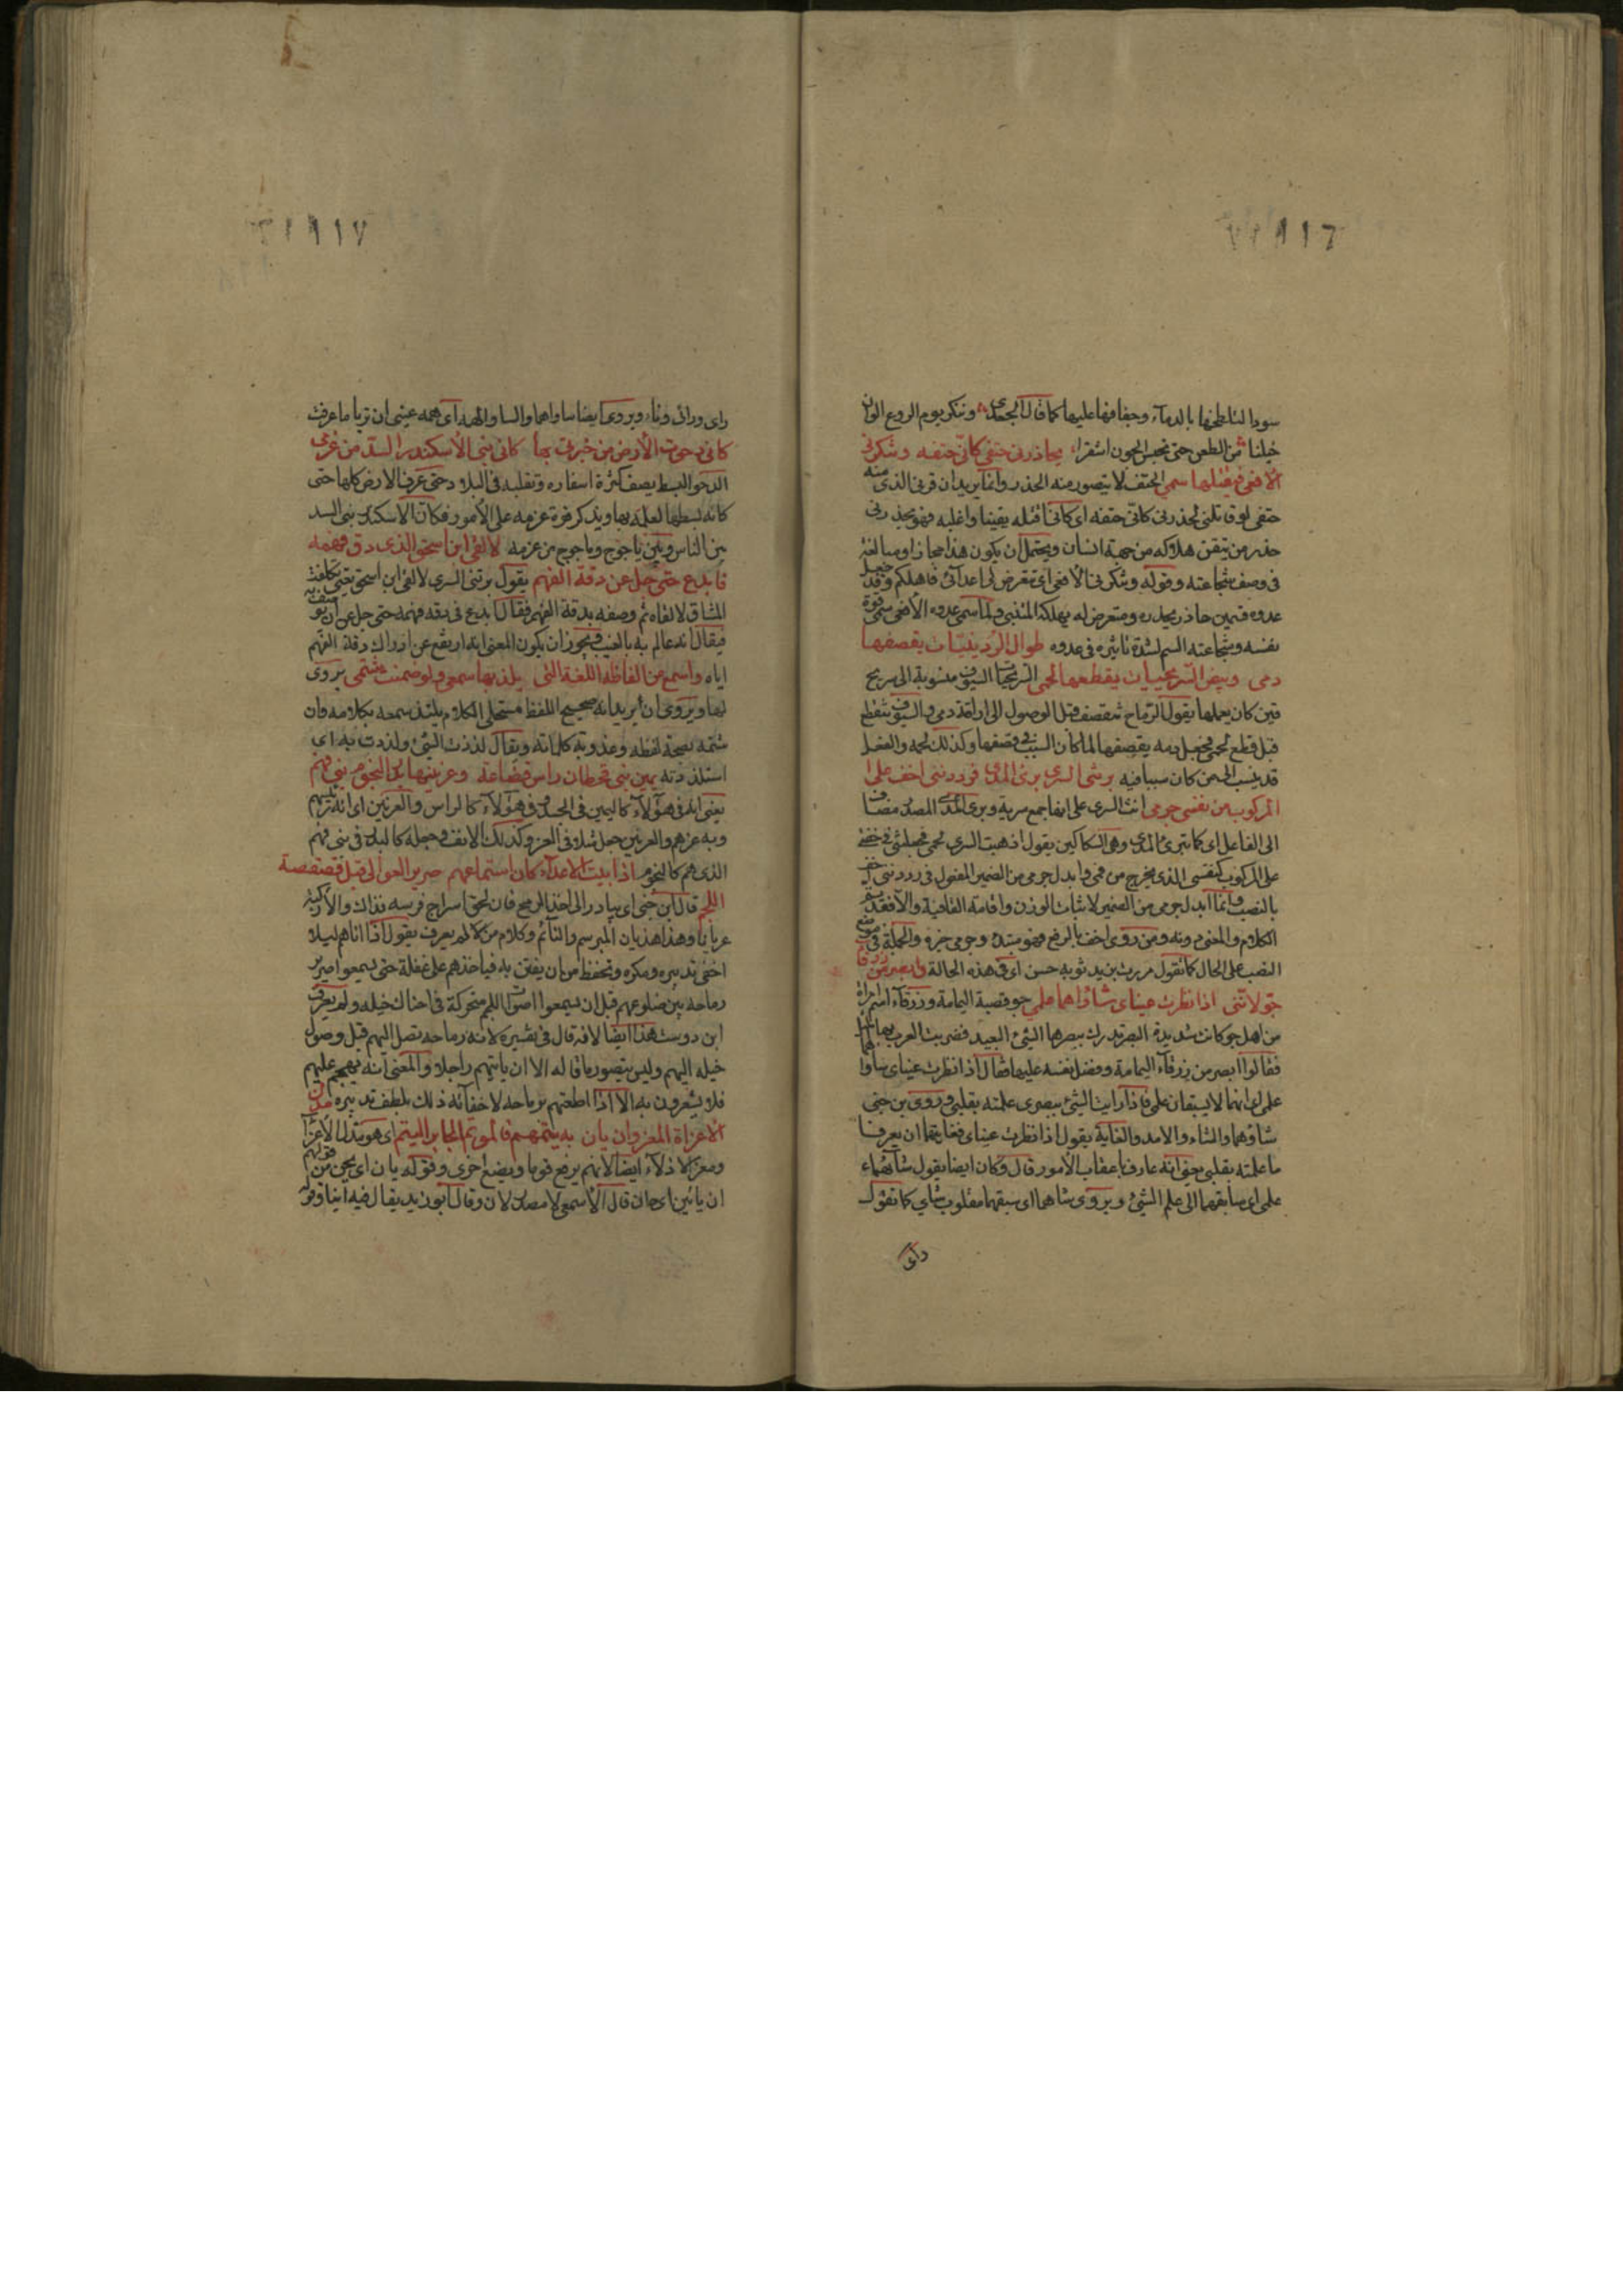 ٩١٦
سودا لتلطخها بالدمآء وجفافها عليها كما قال الجعدى وننكر يوم الروع الوان
خيلنا من الطعن حتى نحسب الجون اشقرا، يحاذرنى حتفى كانّى حتفه وتنكزنى
الافعى فيقتلها سمى الحتف لا يتصور منه الحذر وانما يريد ان قرنى الذى منه
حتفى لو قاتلنى لحذرنى كانى حتفه اى كانى اقتله يقينا واغلبه فهو يحذرنى
حذر من تيقن هلاكه من جهة انسان ويحتمل ان يكون هذا مجازا ومبالغة
فى وصف شجاعته وقوله وتنكزنى الافعى اى تتعرض لى اعدآئى فاهلكهم وقد جعل
عدوه قسمين حاذر يحذره ومتعرض له يهلكه المتنبى ولما سمى عدوه الافعى سمى قوة
نفسه وشجاعته السم لشدة تاثيره فى عدوه طوال الردينيّات يقصفها
دمى وبيض السّريجيات يقطعها لحمى السّريجيات السيوف منسوبة الى سريج
قين كان يعملها يقول الرّماح تتقصف قبل الوصول الى اراقة دمى والسيوف تتقطع
قبل قطع لحمى فجعل دمه يقصفها لما كان السبب فى قصفها وكذلك لحمه والفعل
قد ينسب الى من كان سببا فيه برتنى السرى برى المدى فرددننى اخف على
المركوب من نفسى جرمى انث السرى على انها جمع سرية وبرى المدى المصدر مضاف
الى الفاعل اى كما تبرى المدى وهى السكاكين يقول اذهبت السرى لحمى فجعلتنى فى خفة
على المركوب كنفسى الذى يخرج من فمى وابدل جرمى من الضمير المفعول فى رددننى اخف
بالنصب وانما ابدل جرمى من الضمير لاثبات الوزن واقامة القافية والا فقد تم
الكلام والمعنى دونه ومن روى اخف بالرفع فهو مبتدء وجرمى خبره والجملة فى موضع
النصب على الحال كما تقول مررت بزيد ثوبه حسن اى فى هذه الحالة وابصر من زرقآء
جوّ لانّنى اذا نظرت عيناى شاواهما علمى جو قصبة اليمامة وزرقآء اسم امراة
من اهل جو كانت شديدة البصر تدرك ببصرها الشئ البعيد فضربت العرب بها المثل
فقالوا ابصر من زرقآء اليمامة وفضل نفسه عليها فقال اذا نظرت عيناى ساواهما
علمى اى انهما لا يسبقان علمى فاذا رايت الشئ ببصرى علمته بقلبى وروى بن جنى
شاوهما والشاء والامد والغاية يقول اذا نظرت عيناى فغايتهما ان يعرفا
ما علمته بقلبى يعنى انه عارف باعقاب الامور قال وكان ايضا يقول شآءهما
علمى اى سابقهما الى علم الشئ ويروى شاهما اى سبقهما مقلوب شاى كما تقول
راى
٩١٧
راى ورائ وناء ويروى ايضا ساواهما والساو الهمة اى همه عينى ان تريا ما عرفت
كانى دحوت الارض من خبرتى بها كانى بنى الاسكندر السدّ من عزمى
الدحو البسط يصف كثرة اسفاره وتقلبه فى البلاد حتى عرف الارض كلها حتى
كانه بسطها لعلمه بها ويذكر قوة عزمه على الامور فكان الاسكندر بنى السد
بين الناس وبين ياجوج وماجوج من عزمه لالقى ابن اسحق الذى دق فهمه
فابدع حتى جل عن دقة الفهم يقول برتنى السرى لالقى ابن اسحق يعنى تكلفت
المشاق لالقاه ثم وصفه بدقة الفهم فقال ابدع فى دقه فهمه حتى جل عن ان يوصف به
فيقال انه عالم به بالغيب فيجوز ان يكون المعنى انه ارتفع عن ادراك دقة الفهم
اياه واسمع من الفاظه اللغة التى يلذ بها سمعى ولو ضمنت شتمى يروى
لها ويروى ان يريد انه صحيح اللفظ مستحلى الكلام يلتذ سمعه بكلامه وان
شتمه بصحة لفظه وعذوبة كلماته ويقال لذذت الشئ ولذذت به اى
استلذذته يمين بنى قحطان راس قضاعة وعرنينها بدر النجوم بنى فهم
يعنى انه فى هؤلآء كاليمين فى الجسد وفى هؤلآء كالراس والعرنين اى انه رئيسهم
وبه عزهم والعرنين جعل مثلا فى العز وكذلك الانف وجعله كالبدر فى بنى فهم
الذى هم كالنجوم اذا بيت الاعدآء كان استماعهم صرير العوالى قبل قعقعة
اللجم قال ابن جنى اى يبادر الى اخذ الرمح فان لحق اسراج فرسه فذاك والا ركبه
عريانا وهذا هذيان المبرسم والنائم وكلام من كلام لم يعرف يقول اذا اتاهم ليلا
اخفى تدبيره ومكره وتحفظ من ان يفطن به فياخذهم على غفلة حتى يسمعوا صرير
رماحه بين ضلوعهم قبل ان يسمعوا اصوات اللجم متحركة فى احناك خيله ولم يعرف
ابن دوست هذا ايضا لانه قال فى تفسيره لانه رماحه تصل اليهم قبل وصول
خيله اليهم وليس يتصور ما قاله الا ان ياتيهم راجلا والمعنى انه يهجم عليهم
فلا يشعرون به الا اذا اطعنهم برماحه لاخفآئه ذلك بلطف تدبيره مذل
الاعزاة المعز وان يان به يتمهم فالموتم الجابر اليتم اى هو يذل الاعزآء
ومعز الاذلآء ايضا لانهم يرفع قوما ويضع اخرى وقوله يان اى يحن من قولهم
ان يائين اى حان قال الاسمعى لا مصدر لان وقال ابو زيد يقال فيه اينا وقوله